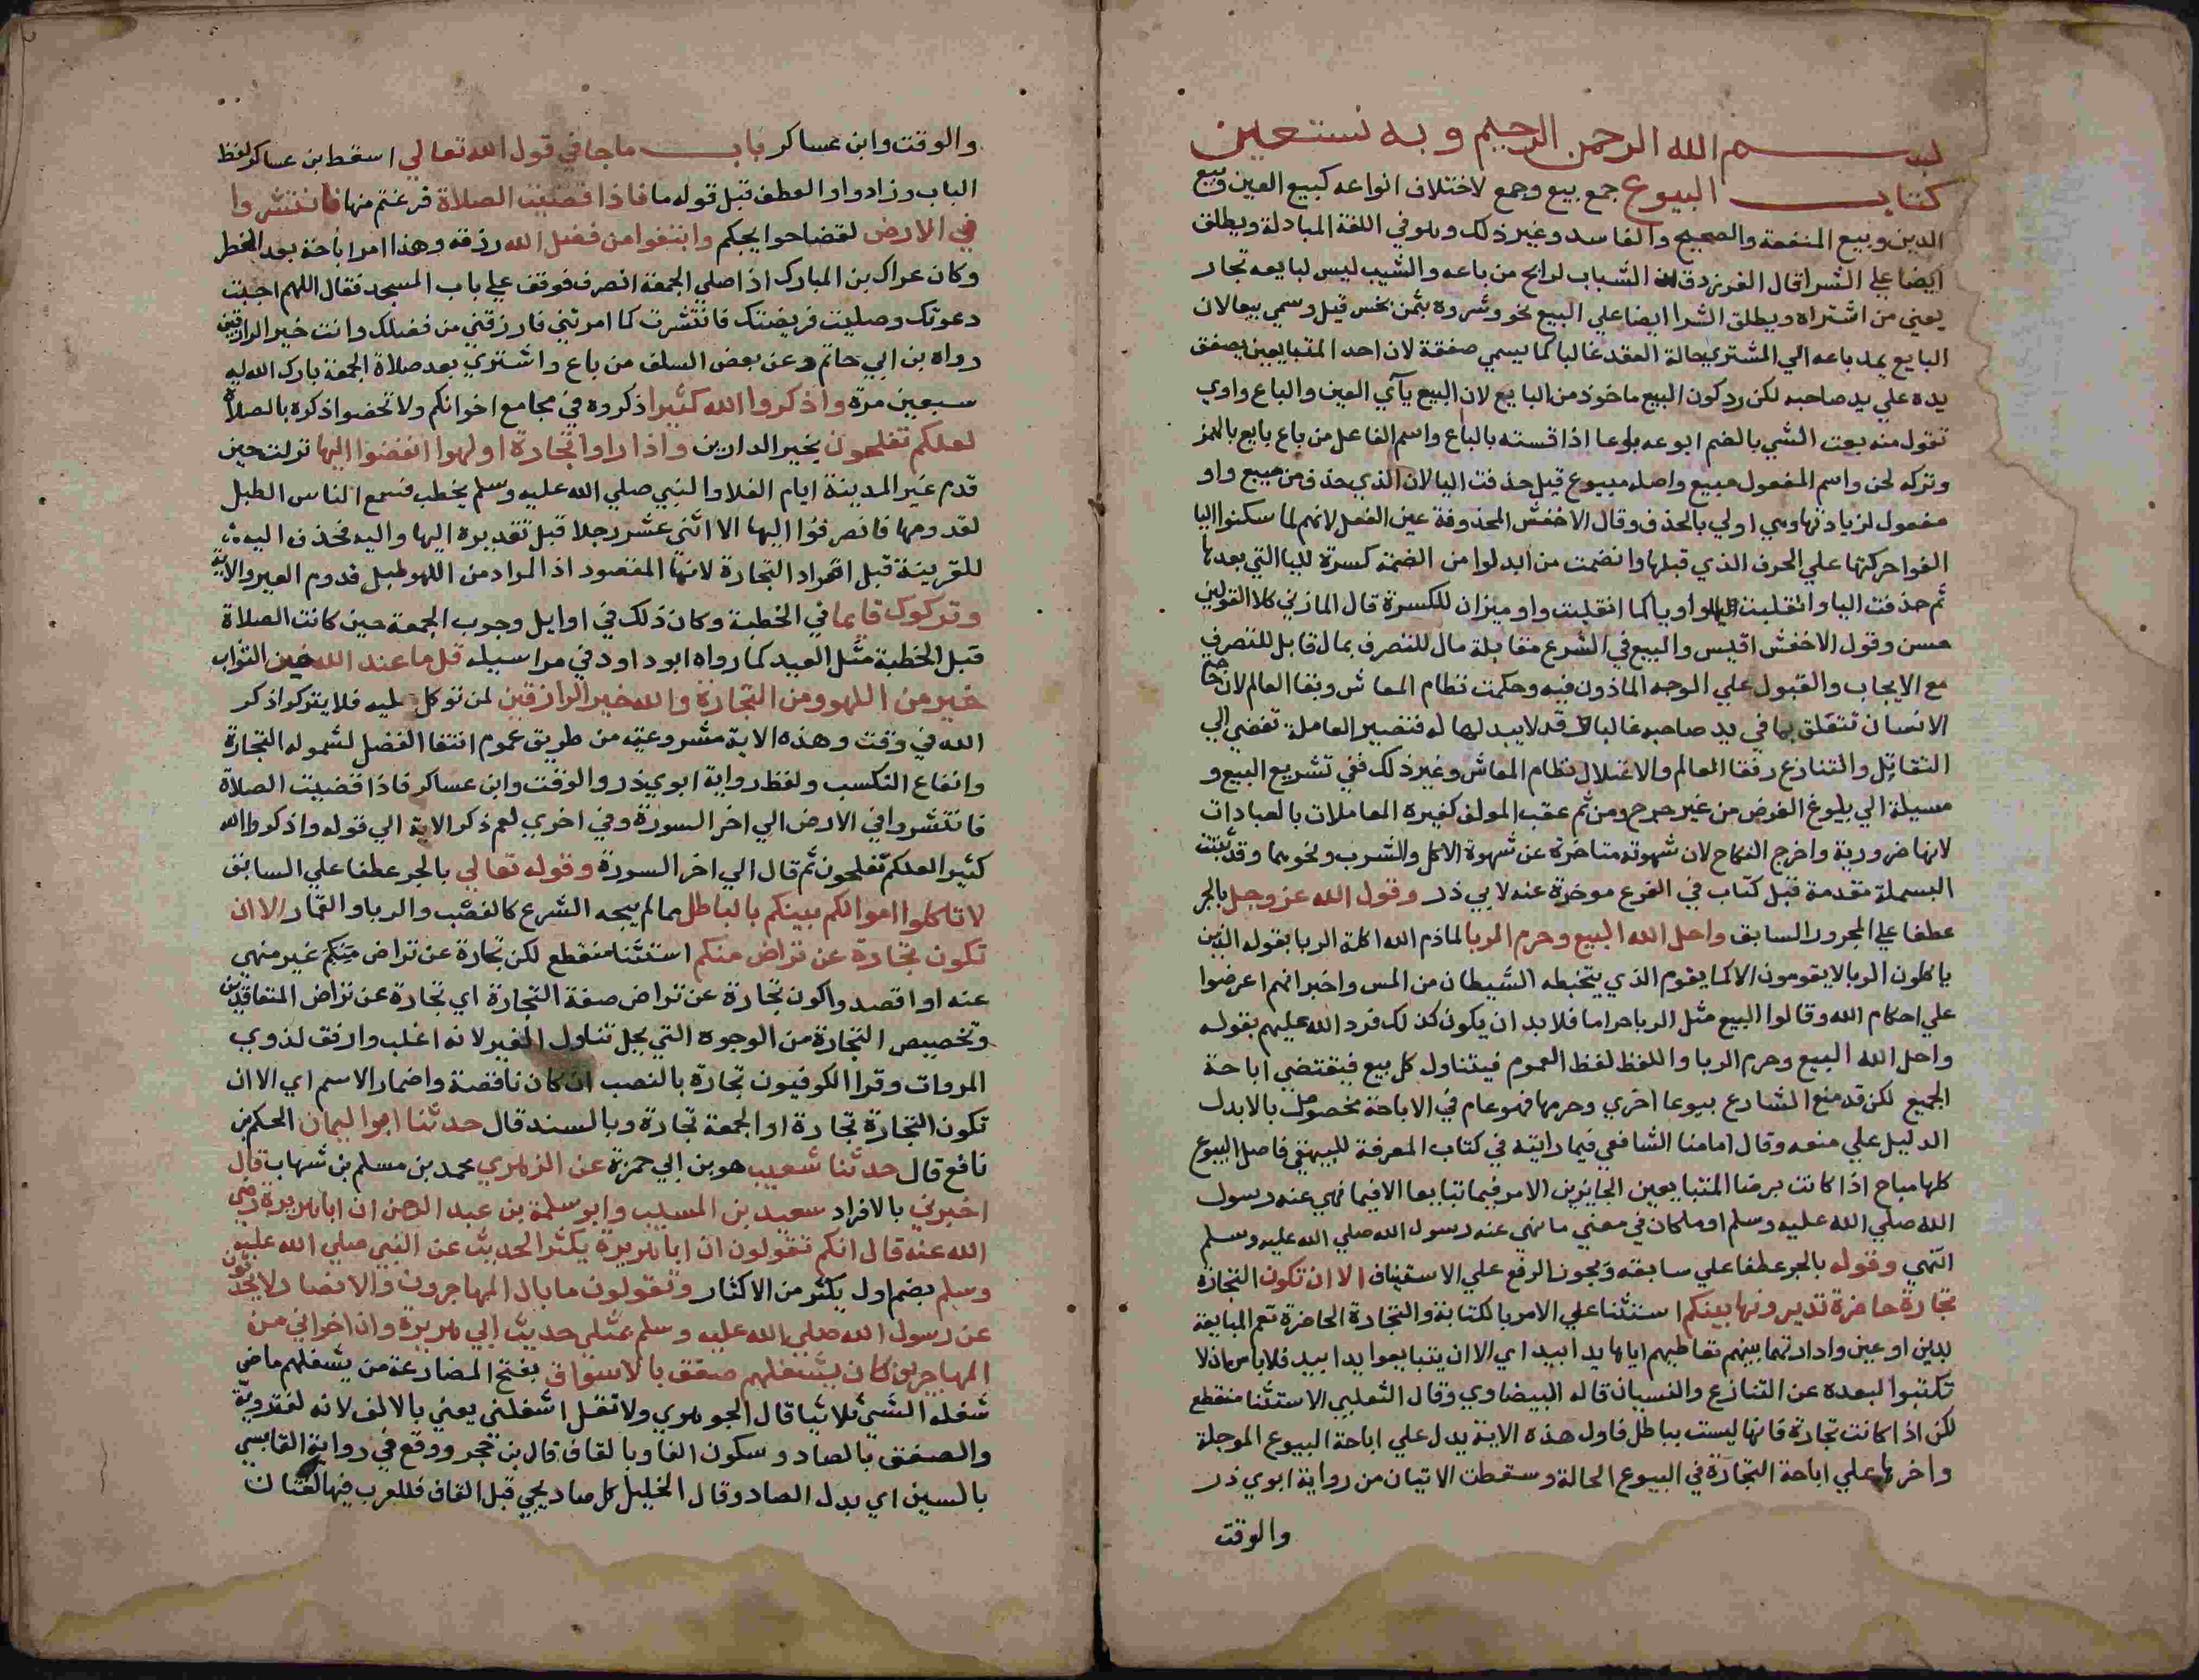 بســـــم الله الرحمن الرحيم وبه نستعين
كتابـــــ البيوع جمع بيع وجمع لاختلاف انواعه كبيع العين وبيع
الدين وبيع المنفعة والصحيح والفاسد وغير ذلك وهو في اللغة المبادلة ويطلق
ايضا علي الشراقال الفرزدق ان الشباب لرابح من باعه والشيب ليس لبايعه تجار
يعني من اشتراه ويطلق الشرا ايضا علي البيع نحو وشروه بثمن بخس قيل وسمي بيعا لان
البايع يمد باعه الي المشتري حالة العقد غالبا كما يسمي صفقة لان احد المتبايعين يصفق
يده علي يد صاحبه لكن رد كون البيع ماخوذ من الباع لان البيع يآي العين والباع واوي
تقول منه بعت الشي بالضم ابوعه بوعا اذا قسته بالباع واسم الفاعل من باع بايع بالهمز
وتركه لحن واسم المفعول مبيع واصله مبيوع قيل حذفت اليا لان الذي حذف من مبيع واو
مفعول لزيادتها وهي اولي بالحذف وقال الاخفش المحذوفة عين الفعل لانهم لما سكنوا اليا
القوا حركتها علي الحرف الذي قبلها وانضمت من ابدلوا من الضمة كسرة لليا التي بعدها
ثم حذفت اليا وانقلبت الواو يا كما انقلبت واو ميزان للكسرة قال المازني كلا القولين
حسن وقول الاخفش اقيس والبيع في الشرع مقابلة مال للتصرف بمال قابل للتصرف
مع الايجاب والقبول علي الوجه الماذون فيه وحكمت نظام المعاش وبقا العالم لان حاجة
الانسان تتعلق بما في يد صاحبه غالبا وقد لا يبد لها له فتصير المعاملة تفضي الي
التقاتل والتنازع رفقا العالم والاختلال نظام المعاش وغير ذلك ففي تشريع البيع و
مسيلة الي بلوغ الغرض من غير حرج ومن ثم عقب المولف كغيره المعاملات بالعبادات
لانها ضرورية واخرج النكاح لان شهوته متاخرة عن شهوة الاكل والشرب ونحوهما وقد ثبتت
البسملة مقدمة قبل كتاب في الفرع موخرة عنه لابي ذر وقول الله عز وجل بالجر
عطفا علي المجرور السابق واحل الله البيع وحرم الربا لما ذم الله اكلة الربا بقوله الذين
ياكلون الربا لا يقومون الا كما يقوم الذي يتخبطه الشيطان من المس واخبر انهم اعرضوا
علي احكام الله وقالوا البيع مثل الربا حراما فلا بد ان يكون كذلك فرد الله عليهم بقوله
واحل الله البيع وحرم الربا واللفظ لفظ العموم فيتناول كل بيع فيقتضي اباحة
الجميع لكن قد منع الشارع بيوعا اخري وحرمها فهو عام في الاباحة مخصوص بالابدل
الدليل علي منعه وقال امامنا الشافعي فيما رايته في كتاب المعرفة للبيهقي فاصل البيوع
كلها مباح اذا كانت برضا المتبايعين الجايزين الامر فيما تبايعا الا فيما نهي عنه رسول
الله صلي الله عليه وسلم او ما كان في معني ما نهي عنه رسول الله صلي الله عليه وسلم
انتهي وقوله بالجر عطفا علي سابقه ويجون الرفع علي الاستيناف الا ان تكون التجارة
تجارة حاضرة تديرونها بينكم استثنا علي الامر بالكتابة والتجارة الحاضرة تعم المبايعة
بدين او عين وادارتها بينهم تعاطيهم اياها يدا بيد اي الا ان يتبايعوا يدا بيد فلا باس ان لا
تكتبوا لبعده عن التنازع والنسيان قاله البيضاوي وقال الثعلبي الاستثنا منقطع
لكن اذا كانت تجارة فانها ليست بباطل فاول هذه الاية يدل علي اباحة البيوع الموجلة
واخرها علي اباحة التجارة في البيوع الحالة وسقطت الاتيان من رواية ابوي ذر
والوقت
والوقت وابن عساكر بابـــــ ما جا في قول الله تعالي اسقط بن عساكر لفظ
الباب وزاد واو العطف قبل قوله ما فاذا قضيت الصلاة فرغتم منها فانتشروا
في الارض لقضا حوايجكم وابتغوا من فضل الله رزقه وهذا امر اباحة بعد الحظر
وكان عراك بن المبارك اذا صلي الجمعة انصرف فوقف علي باب المسجد فقال اللهم اجبت
دعوتك وصليت فريضتك فانتشرت كما امرتني فارزقني من فضلك وانت خير الرازقين
رواه بن ابي حاتم وعن بعض السلف من باع واشتري بعد صلاة الجمعة بارك الله له
سبعين مرة واذكروا الله كثيرا اذكروه في مجامع اخوانكم ولا تخصوا ذكره بالصلاة
لعلكم تفلحون بخير الدارين واذا راوا تجارة او لهوا انفضوا اليها نزلت حين
قدم عير المدينة ايام الغلا والنبي صلي الله عليه وسلم يخطب فسمع الناس الطبل
لقدومها فانصرفوا اليها الا اثني عشر رجلا قيل تقديره اليها واليه فحذف اليه
للقرينة قيل افراد التجارة لانها المقصود اذ المراد من اللهو طبل قدوم العير والاية
وتركوك قايما في الخطبة وكان ذلك في اوايل وجوب الجمعة حين كانت الصلاة
قبل الخطبة مثل العيد كما رواه ابو داود في مراسيله قل ما عند الله من الثواب
خير من اللهو ومن التجارة والله خير الرازقين لمن توكل عليه فلا يتركوا ذكر
الله في وقت وهذه الاية مشروعية من طريق عموم ابتغا الفضل لشموله التجارة
وانفاع التكسب ولفظ رواية ابوي ذر والوقت وابن عساكر فاذا قضيت الصلاة
فانتشروا في الارض الي اخر السورة وفي اخري لهم ذكر الاية الي قوله واذكروا الله
كثيرا لعلكم تفلحون ثم قال الي اخر السورة وقوله تعالي بالجر عطفا علي السابق
لا تاكلوا اموالكم بينكم بالباطل مما لم يبحه الشرع كالغصب والربا والقمار الا ان
تكون تجارة عن تراض منكم استثنا منقطع لكن تجارة عن تراض منكم غير منهي
عنه او اقصدوا كون تجارة عن تراض صفة التجارة اي تجارة عن تراض المتعاقدين
وتخصيص التجارة من الوجوه التي يحل تناول الغير لانه اغلب وارفق لذوي
المروات وقرا الكوفيون تجارة بالنصب ان كان ناقصة واضمار الاسم اي الا ان
تكون التجارة تجارة او الجمعة تجارة وبالسند قال حدثنا ابو اليمان الحكم بن
نافع قال حدثنا شعيب هو بن ابي حمزة عن الزهري محمد بن مسلم بن شهاب قال
اخبرني بالافراد سعيد بن المسيب وابو سلمة بن عبد الرحمن ان ابا هريرة رضي
الله عنه قال انكم تقولون ان ابا هريرة يكثر الحديث عن النبي صلي الله عليه
وسلم بضم اول يكثر من الاكثار وتقولون ما بال المهاجرون والانصار لا يحدثون
عن رسول الله صلي الله عليه وسلم بمثل حديث ابي هريرة وان اخواني من
المهاجرين كان يشغلهم صفق بالاسواق بفتح المضارعة من يشغلهم ماضي
شغله الشي ثلاثيا قال الجوهري ولا تقل اشغلني يعني بالالف لانه لغة رديئة
والصفق بالصاد وسكون الفا وبالقاف قال بن حجر ووقع في رواية القابسي
بالسين اي بدل الصاد وقال الخليل كل صاد يجي قبل القاف فللعرب فيها لغتان